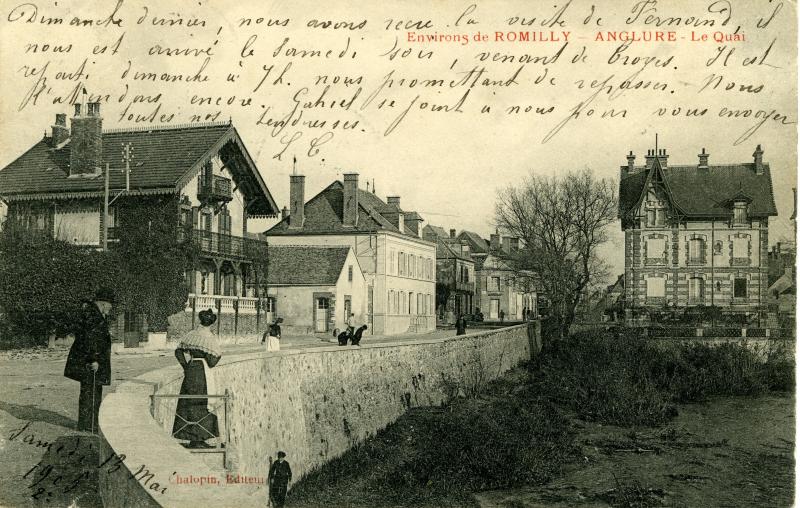 Dimanche dernier, nous avons reçu la visite de Fernand, il
Environs de ROMILLY — ANGLURE - Le Quai
nous est arrivé le Samedi soir, venant de Troyes. Il est
reparti dimanche à 7h. nous promettant de repasser. Nous
l'attendons encore. Gabriel se joint à nous pour vous envoyer
toutes nos tendresses.
L C.
Samedi 13 Mai
190
Chalopin, Editeur